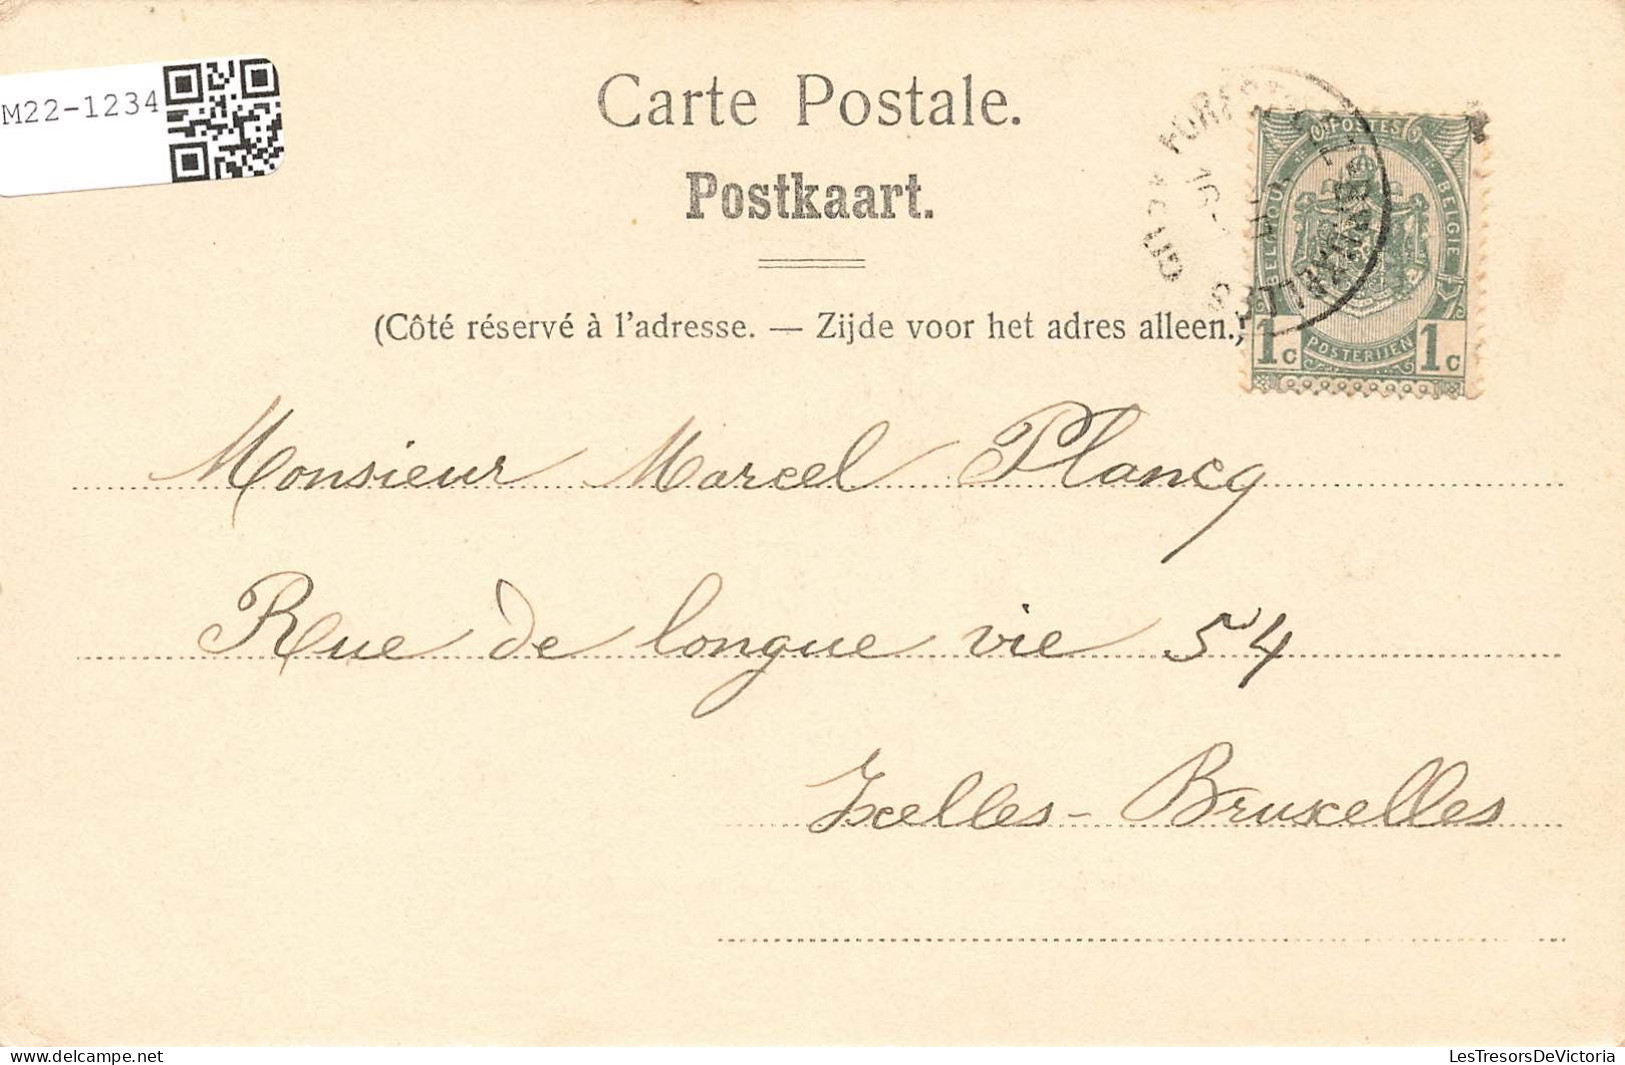 M22-1234
Carte Postale.
Postkaart.
(Côté réservé à l'adresse. — Zijde voor het adres alleen.)
POSTES
BELGIQUE
BELGIE
1c POSTERIJEN 1c
BRUXELLES
Monsieur Marcel Plancq
Rue de longue vie 54
Ixelles - Bruxelles
www.delcampe.net
LesTresorsDeVictoria